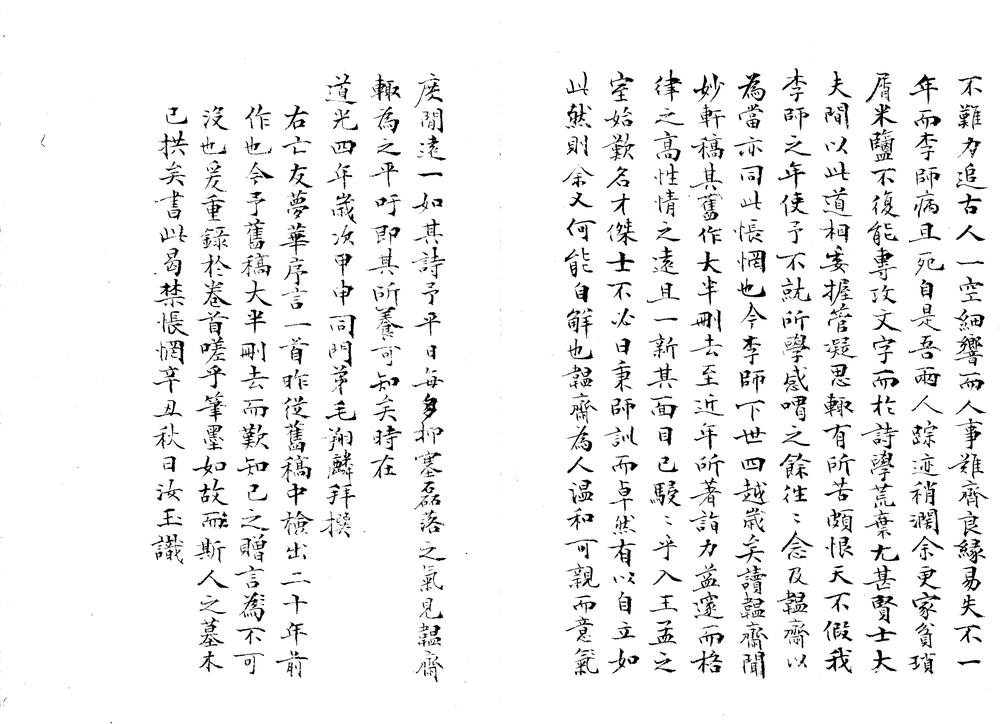 不難力追古人一空細響而人事難齊良緣易失不一
年而李師病且死自是吾兩人踪迹稍濶余更家貧瑣
屑米鹽不復能專攻文字而於詩學荒棄尤甚賢士大
夫間以此道相委握管凝思輙有所苦頗恨天不假我
李師之年使予不就所學感喟之餘徃〻念及韞齋以
為當亦同此悵惘也今李師下世四越歲矣讀韞齋聞
妙軒稿其舊作大半刪去至近年所著詣力益邃而格
律之高性情之遠且一新其面目已駸〻乎入王孟之
室始歎名才傑士不必日秉師訓而卓然有以自立如
此然則余又何能自解也韞齋為人温和可親而意氣
庋閒遠一如其詩予平日每多抑塞磊落之氣見韞齋
輙為之平吁即其所養可知矣時在
道光四年歲次甲申同門弟毛翔麟拜撰
右亡友夢華序言一首昨從舊稿中檢出二十年前
作也今予舊稿大半刪去而歎知己之贈言為不可
沒也爰重錄於卷首嗟乎筆墨如故而斯人之墓木
已拱矣書此曷禁悵惘辛丑秋日汝玉識